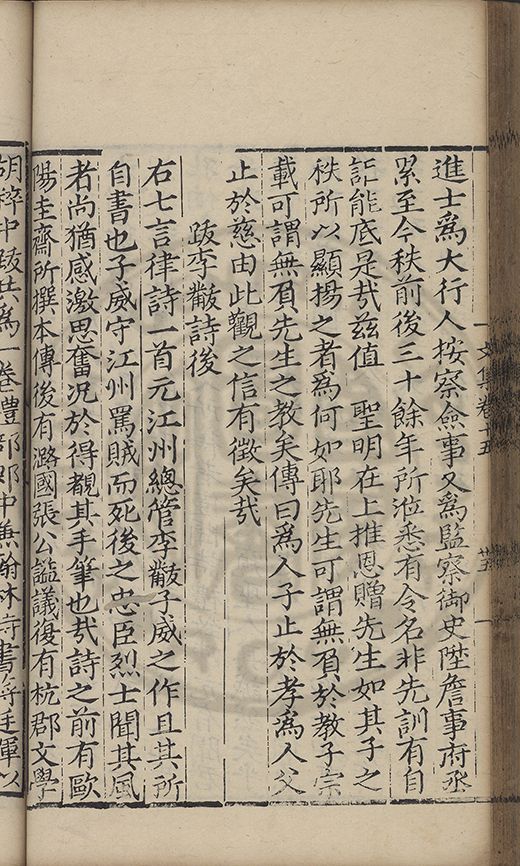 進士爲大行人按察僉事又爲監察御史陞詹事府丞
累至今秩前後三十餘年所涖悉有令名非先訓有自
詎能底是㢤兹值 聖明在上推恩贈先生如其子之
秩所以顯揚之者爲何如耶先生可謂無負於教子宗
載可謂無負先生之教矣傳曰爲人子止於孝爲人父
止於慈由此觀之信有徵矣㢤
跋李黻詩後
右七言律詩一首元江州總管李黻子威之作且其所
自書也子威守江州罵賊而死後之忠臣烈士聞其風
者尚猶感激思奮況於得覩其手筆也㢤詩之前有歐
陽圭齋所撰本傳後有潞國張公謚議復有杭郡文學
中跋共爲一卷禮部郎中兼翰林侍書蔣廷暉以
文集卷十五
廿五